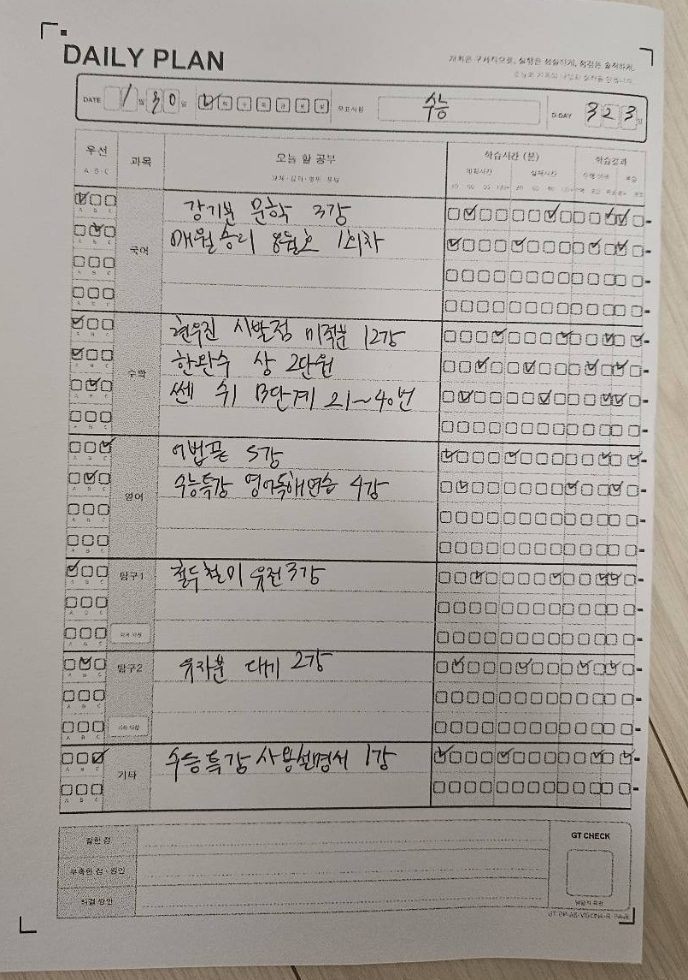 DAILY PLAN
계획은 구체적으로, 실행은 성실하게, 점검은 솔직하게.
DATE 1 월 30 일 목표시험 수능 D-DAY 323 일
우선 과목 오늘 할 공부 학습시간 (분) 학습결과
A B C 계획시간 실제시간
국어
강기본 문학 3강
매월승리 8월호 1회차
수학
현우진 시발점 미적분 12강
한완수 상 2단원
쎈 수1 B단계 21~40번
영어
어법끝 5강
수능특강 영어독해연습 4강
탐구1
철두철미 유전 3강
탐구2
유자분 대기 2강
기타
수능특강 사용설명서 1강
잘한 점
부족한 점·원인
해결 방안
GT CHECK